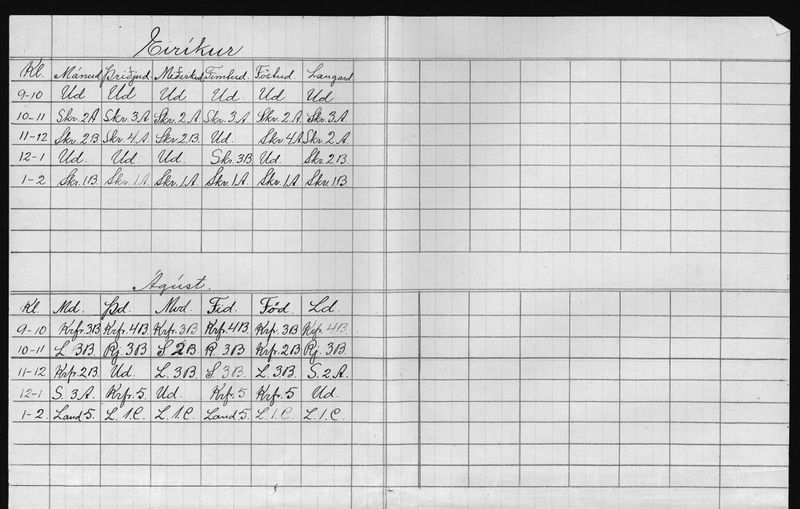 Eiríkur
Kl. Mánud Þriðjud. Miðvikud Fimtud. Föstud. Laugard
9-10 Ud Ud Ud Ud Ud Ud
10-11 Skr. 2A Skr. 3A Skr. 2A Skr. 3A Skr. 2A Skr. 3A
11-12 Skr. 2B Skr. 4A Skr. 2B. Ud. Skr. 4A Skr. 2A
12-1 Ud. Ud. Ud. Skr. 3B Ud. Skr. 2B
1-2 Skr. 1B Skr. 1A. Skr. 1A Skr. 1A Skr. 1A Skr. 1B
Ágúst.
Kl. Md. Þd. Mvd Fid. Föd. Ld.
9-10 Krfr. 3B Krfr. 4B Krfr. 3B Krfr. 4B Krfr. 3B Krfr. 4B.
10-11 L 3B. Rj. 3B S 2B R. 3B Krfr. 2B Rj. 3B
11-12 Krfr. 2B Ud. L. 3B S. 3B. L. 3B S. 2A
12-1 S. 3A. Krfr. 5 Ud. Krfr. 5 Krfr. 5 Ud.
1-2. Land 5. L. 1.C. L. 1.C. Land 5. L. 1.C. L. 1.C.